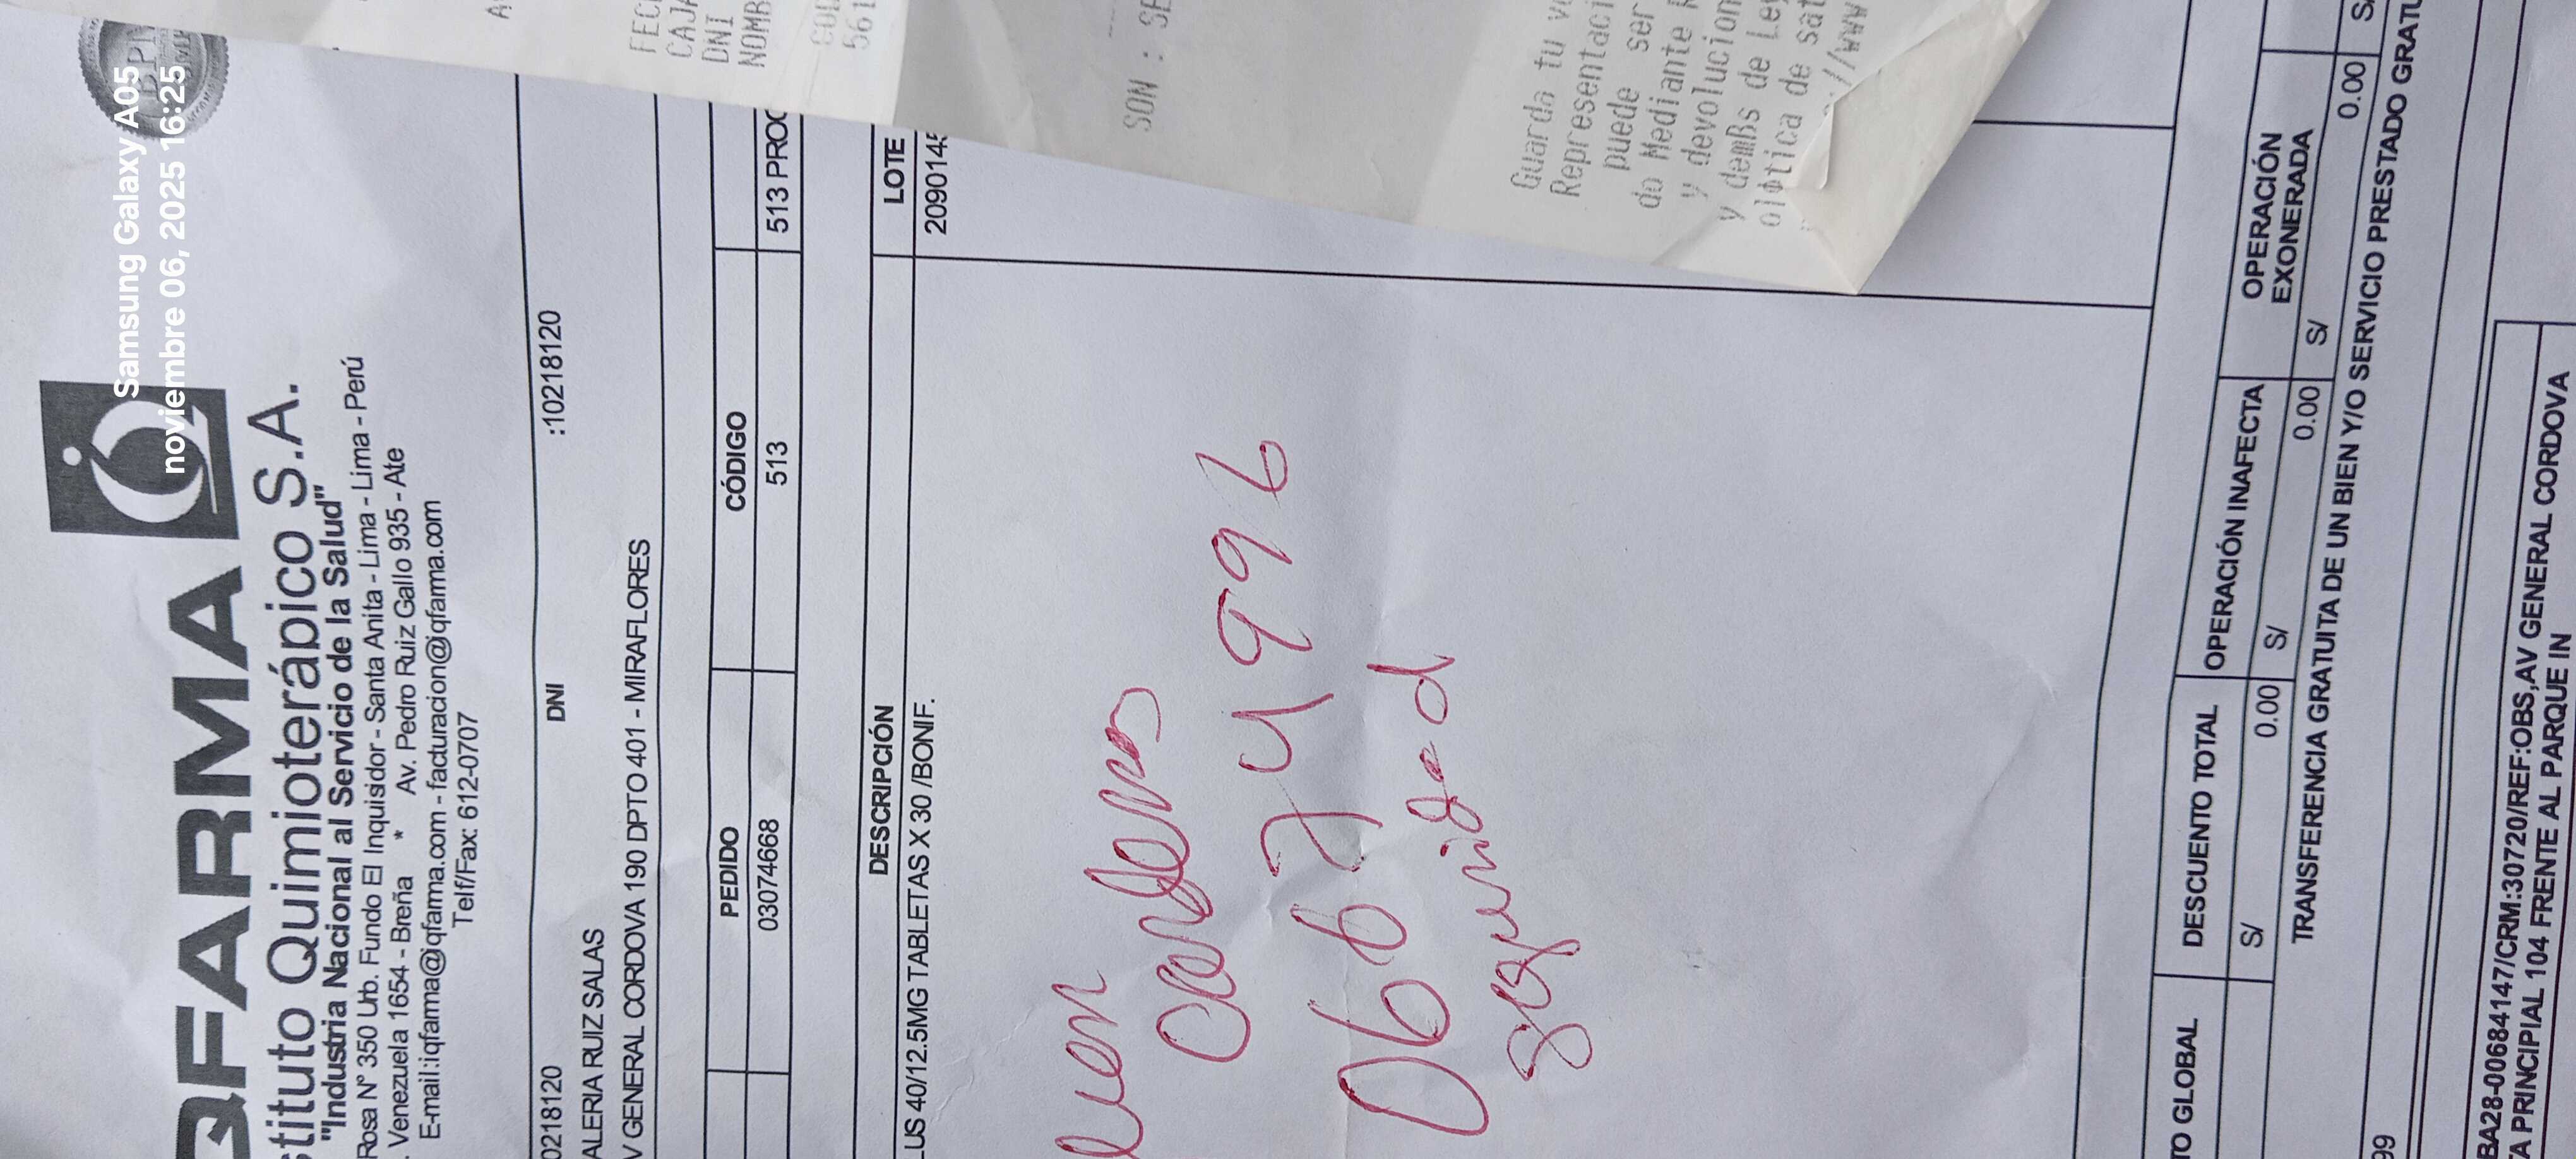 Samsung Galaxy A05
noviembre 06, 2025 16:25
QFARMA
stituto Quimioterápico S.A.
"Industria Nacional al Servicio de la Salud"
Rosa N° 350 Urb. Fundo El Inquisidor - Santa Anita - Lima - Lima - Perú
. Venezuela 1654 - Breña * Av. Pedro Ruiz Gallo 935 - Ate
E-mail:iqfarma@iqfarma.com - facturacion@iqfarma.com
Telf/Fax: 612-0707
0218120 DNI :10218120
ALERIA RUIZ SALAS
V GENERAL CORDOVA 190 DPTO 401 - MIRAFLORES
PEDIDO CÓDIGO
03074668 513 513 PROC
DESCRIPCIÓN LOTE
LUS 40/12.5MG TABLETAS X 30 /BONIF. 2090145
FECH
CAJA
DNI
NOMB
COD
561
SON : SE
Guarda tu v
Representaci
puede ser
do Mediante
y devolucion
y demßs de Ley
de sat
://www
06624996
TO GLOBAL DESCUENTO TOTAL OPERACIÓN INAFECTA OPERACIÓN EXONERADA
S/ 0.00 S/ 0.00 S/ 0.00 S/
TRANSFERENCIA GRATUITA DE UN BIEN Y/O SERVICIO PRESTADO GRATU
99
BA28-00684147/CRM:30720/REF:OBS,AV GENERAL CORDOVA
TA PRINCIPIAL 104 FRENTE AL PARQUE IN